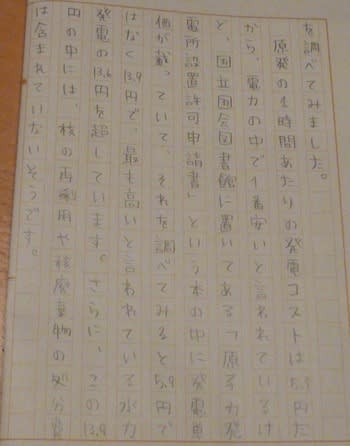 を調べてみました。
原発の1時間あたりの発電コストは5.9円だ
から、電力の中で1番安いと言われているけ
ど、国立国会図書館に置いてある「原子力発
電所設置許可申請書」という本の中に発電単
価が載っていて、それを調べてみると5.9円で
はなく13.9円で、最も高いと言われている水力
発電の13.6円を超しています。さらに、この13.9
円の中には、核の再利用や核廃棄物の処分費
は含まれていないそうです。